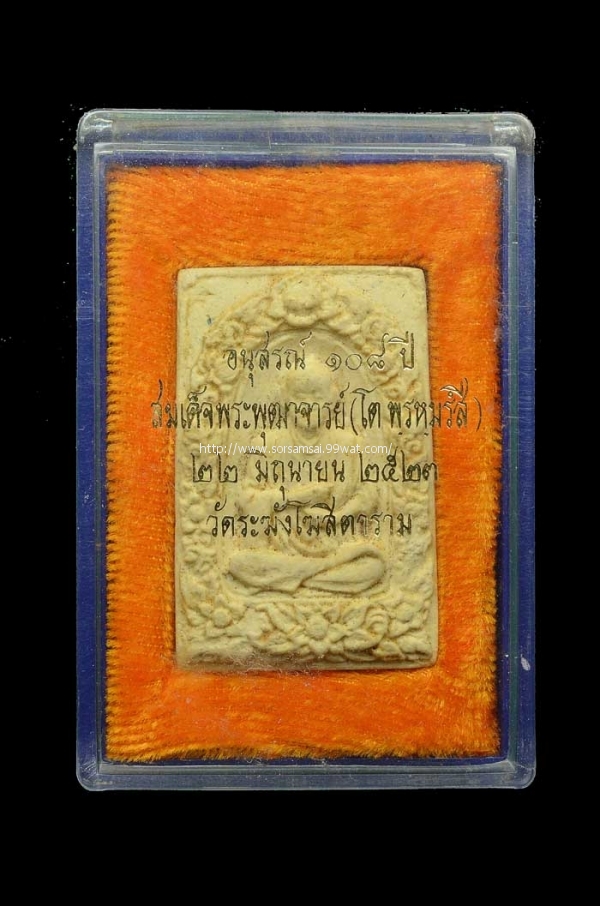 อนุสรณ์ ๑๐๘ ปี
สมเด็จพระพุฒาจารย์(โต พรหฺมรํสี)
http://www.sorsamsai.99wat.com/
๒๒ มิถุนายน ๒๕๒๓
วัดระฆังโฆสิตาราม